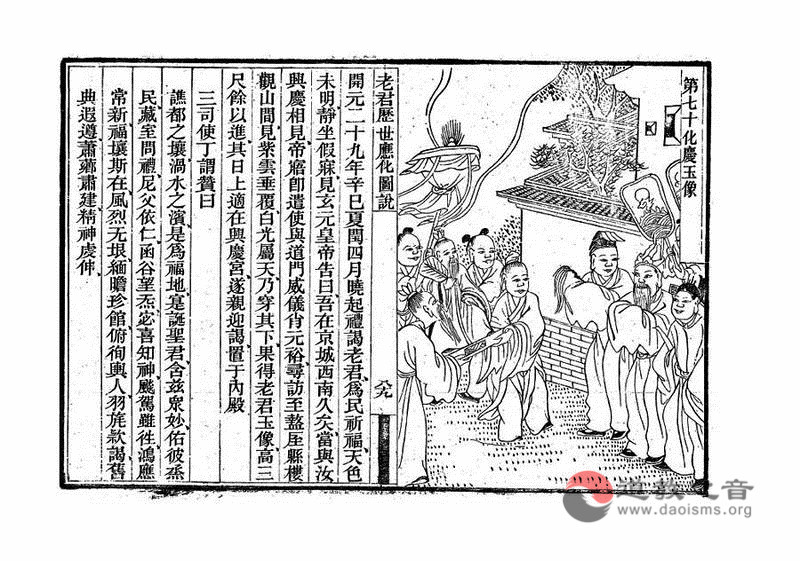 第七十化慶玉像
老君歷世應化圖說
開元二十九年辛巳夏閏四月曉起禮謁老君爲民祈福天色
未明靜坐假寐見玄元皇帝告曰吾在京城西南久矣當與汝
興慶相見帝寤卽遣使與道門威儀肖元裕尋訪至盩厔縣樓
觀山間見紫雲垂覆白光屬天乃穿其下果得老君玉像高三
尺餘以進其日上適在興慶宮遂親迎謁置于內殿
三司使丁謂贊曰
譙都之壤渦水之濱是爲福地寔誕聖君含兹衆妙佑彼烝
民藏室問禮尼父依仁函谷望炁宓喜知神飈駕雖徃鴻應
常新福壤斯在風烈无垠緬瞻珍館俯徇輿人羽旄款謁舊
典遐遵蕭薌肅建精神虔伸
道教之音
www.daoisms.org